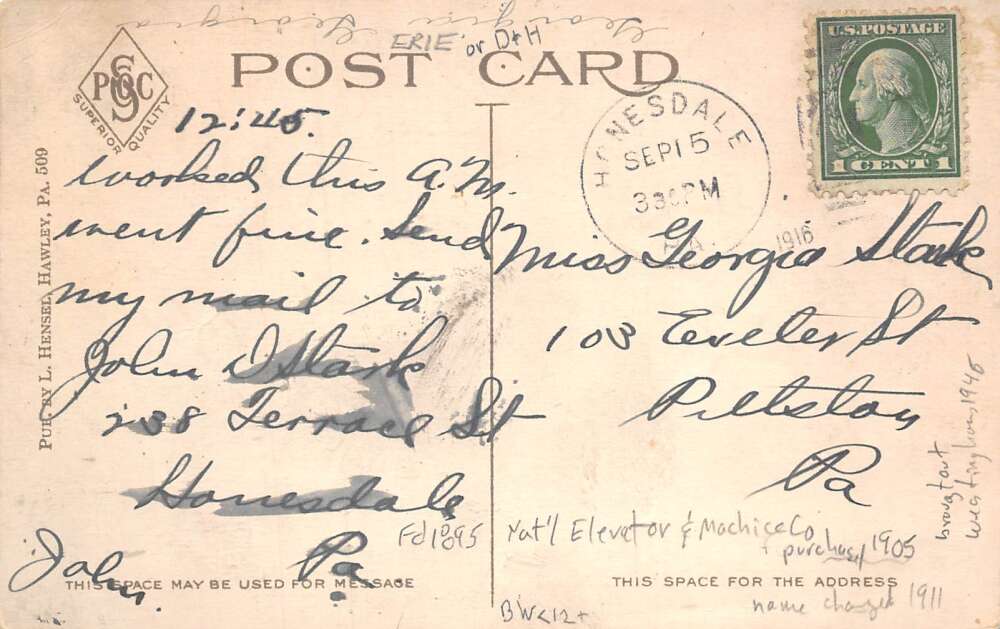 Georgia Georgia Georgia
ERIE or D+H
POST CARD
SPOC
SUPERIOR QUALITY
PUB. BY L. HENSEL, HAWLEY, PA. 509
12:45.
worked this A.M.
went fine. Send
my mail to
John D Stark
238 Terrace St
Honesdale
Pa
John.
THIS SPACE MAY BE USED FOR MESSAGE
U.S. POSTAGE
1 CENT 1
HONESDALE
SEP 15
330PM
PA.
1916
Miss Georgia Stark
103 Exeter St
Pittston
Pa
brought out
Westinghouse 1946
Fd 1895 Nat'l Elevator & Machine Co
purchased 1905
name changed 1911
THIS SPACE FOR THE ADDRESS
BW<12+